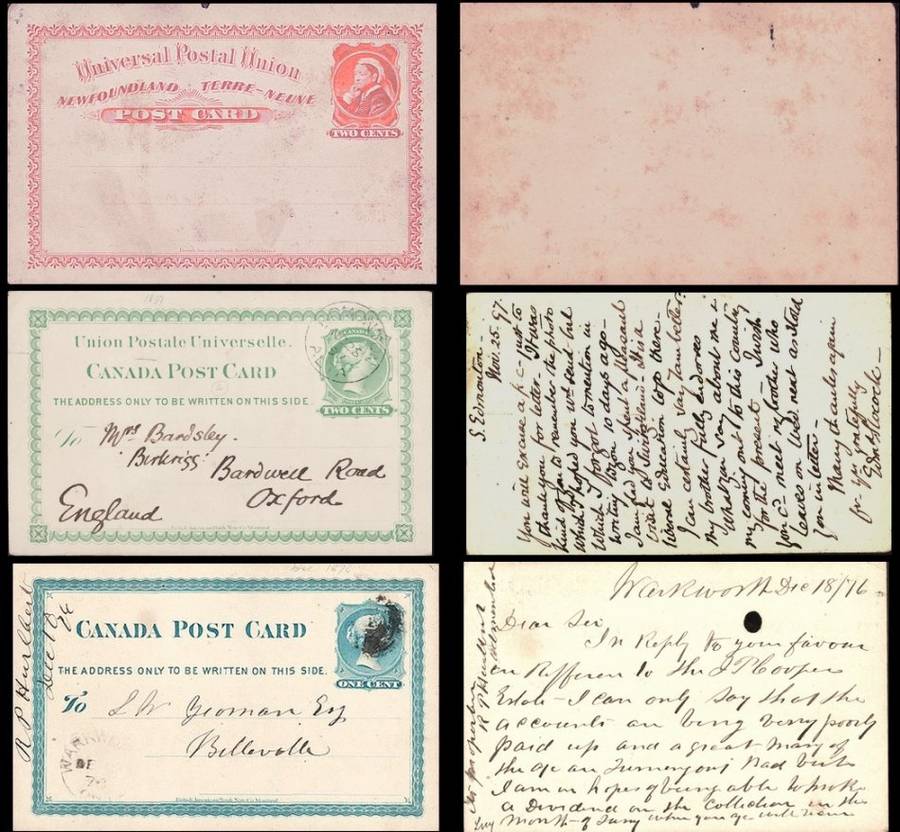 Universal Postal Union
NEWFOUNDLAND TERRE-NEUVE
POST CARD
TWO CENTS
Union Postale Universelle.
CANADA POST CARD
THE ADDRESS ONLY TO BE WRITTEN ON THIS SIDE.
TWO CENTS
To Mrs Bardsley.
Birkrigg
Bardwell Road
Oxford
England
S. Edmonton
Nov. 25. 97.
You will excuse a p.c. just to
thank you for letter. It was
kind of you to remember the photo
which I hoped you wd. send but
which I forgot to mention in
writing 10 days ago.
I am glad you spent a pleasant
visit to Switzerland. It is a
liberal Education to go there.
I can certainly say I am better.
My brother fully endorses
what you say about me &
my coming out to this country
for the present. I wish
you cd. meet my brother who
leaves on Wed. next as I told
you in letter.
Many thanks again
yrs gratefully
CANADA POST CARD
THE ADDRESS ONLY TO BE WRITTEN ON THIS SIDE.
ONE CENT
To
Yeoman Esq
Belleville
R P Hurlbert
Warkworth Dec 18/76
Dear Sir
In Reply to your favour
in Refference to the J P Cooper
Estate I can only say that the
accounts are being very poorly
paid up and a great many of
the are turning out Bad but
I am in hopes of being able to make
a Dividend on the collection in the
Month of
R P Hurlbert